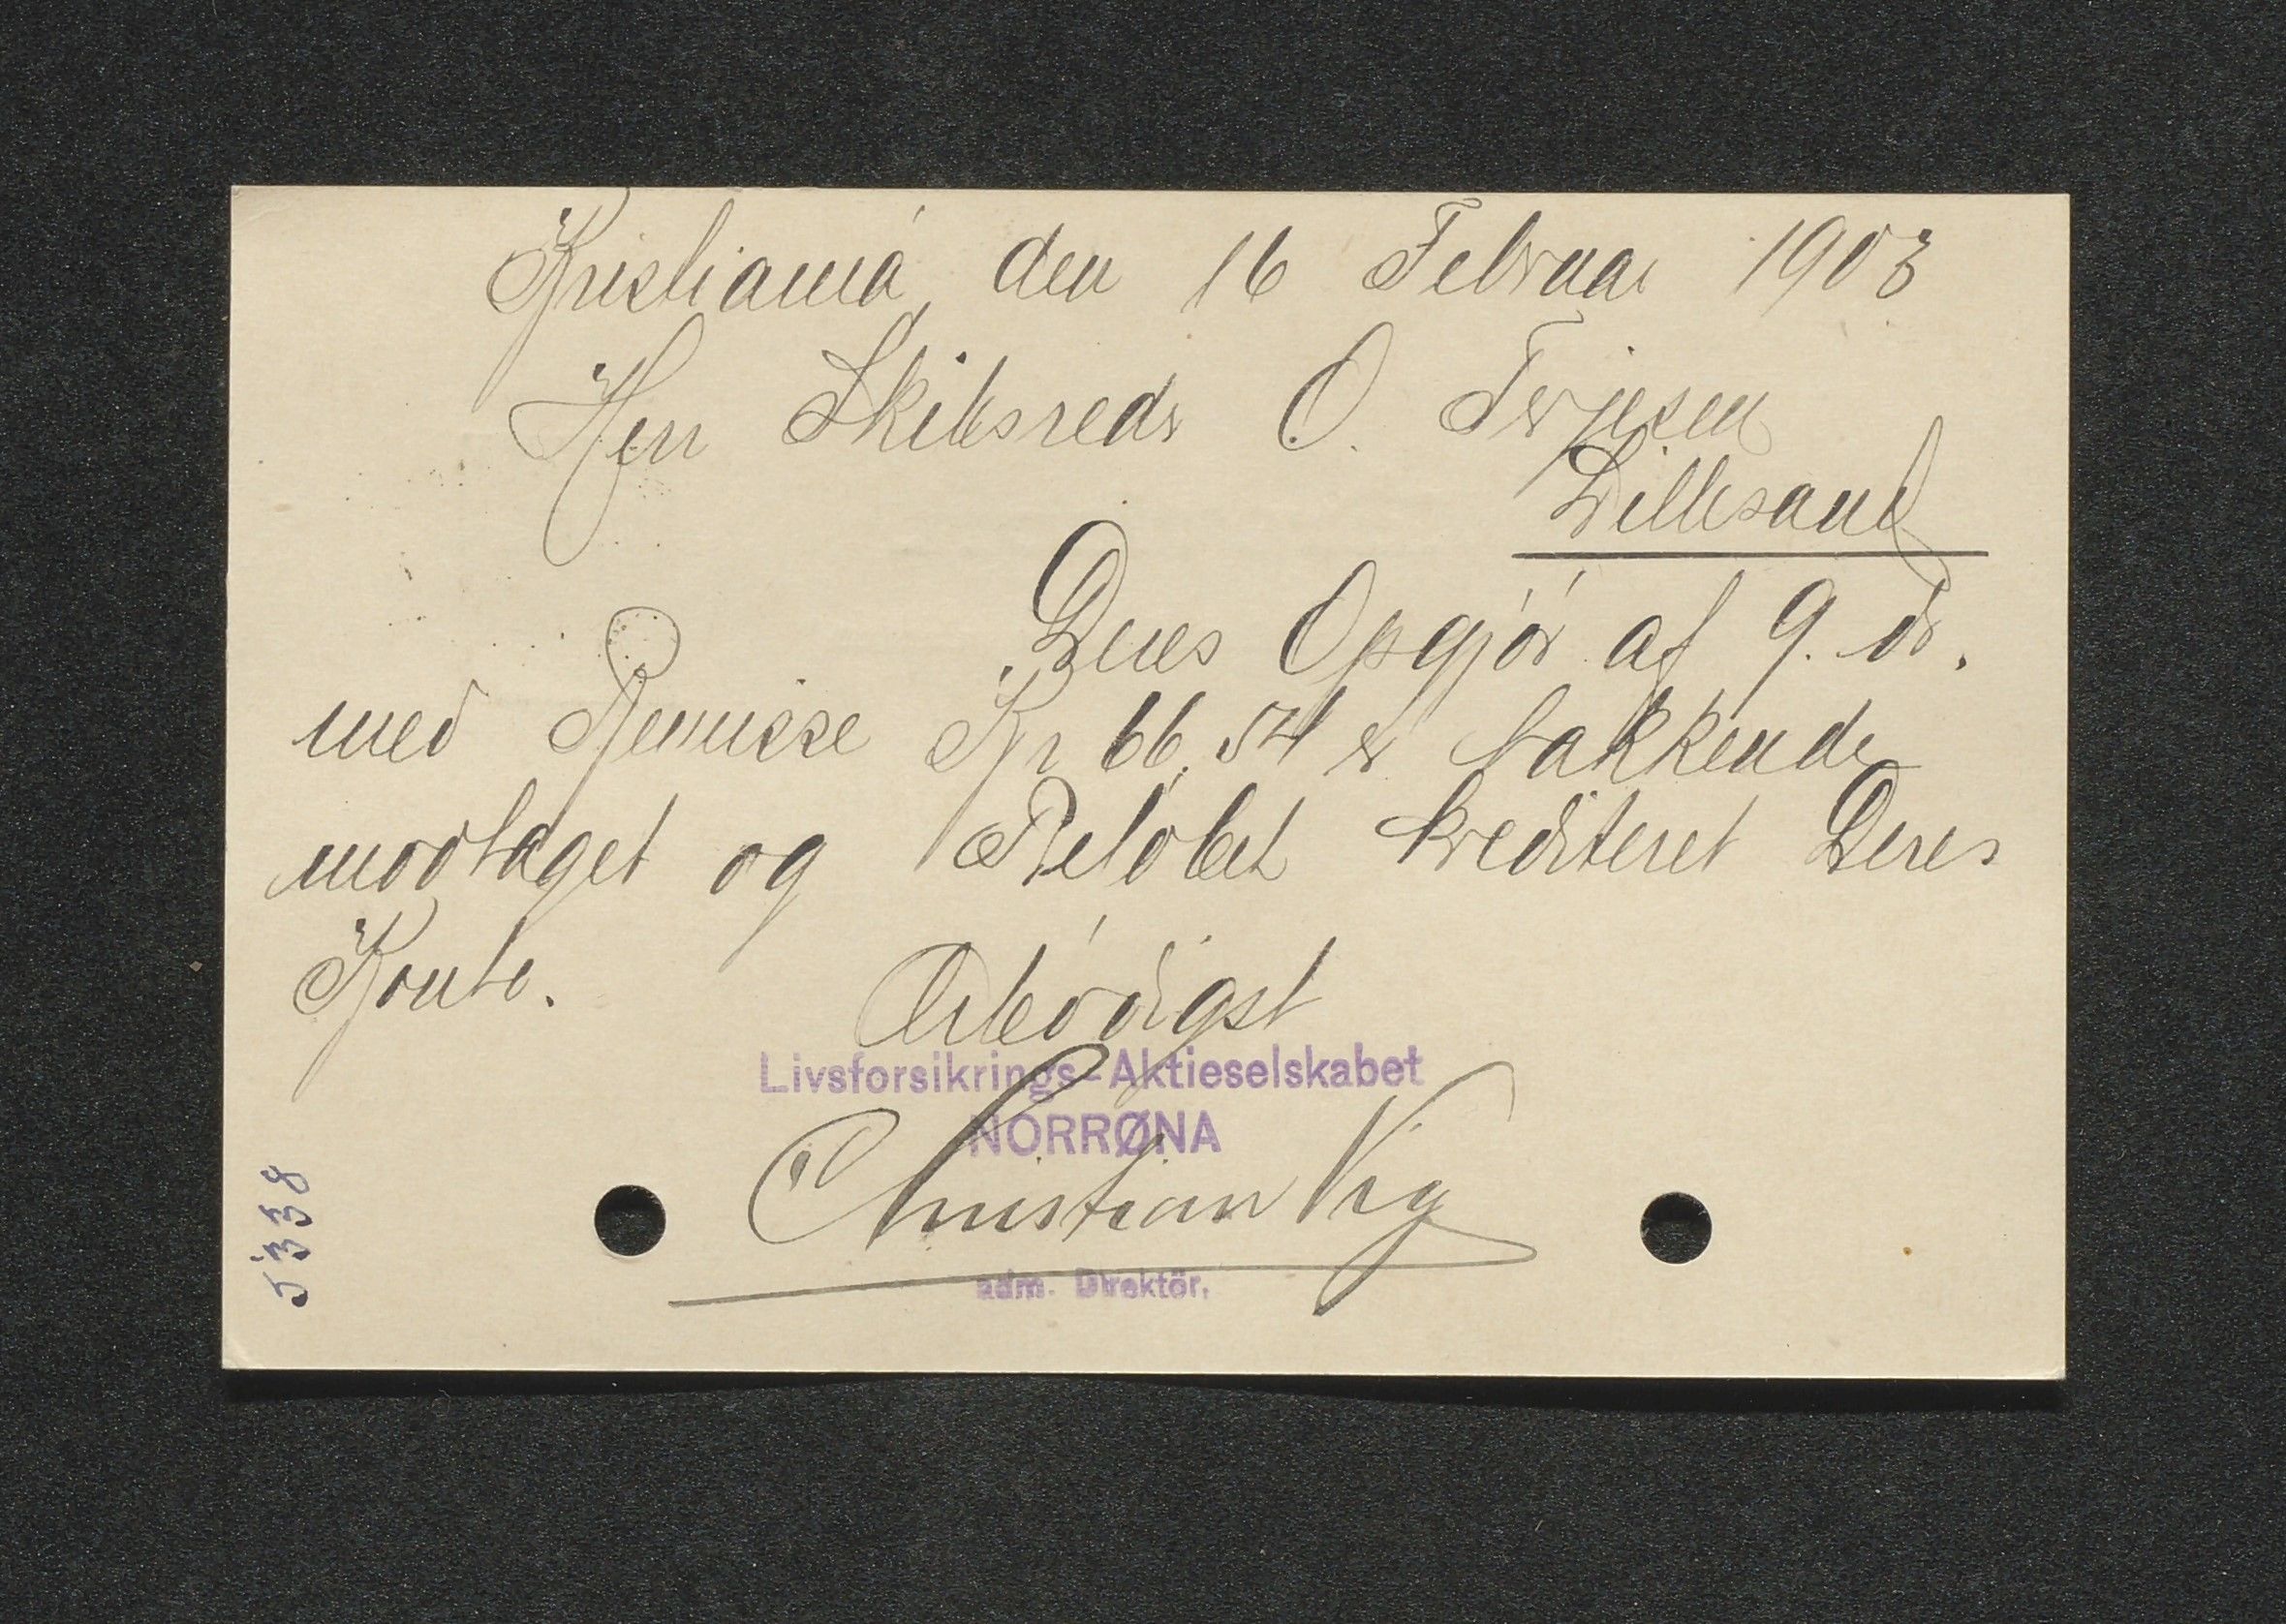 Kristiania den 16 Februar 1903
Herr Skibsreder O. Terjesen
Lillesand
Deres Opgjør af 9. ds.
med Remisse Kr 66,54 er takkende
modtaget og Beløbet krediteret Deres
Konto.
Ærbødigst
Livsforsikrings-Aktieselskabet
NORRØNA
Christian Vig
adm. Direktör.
5338